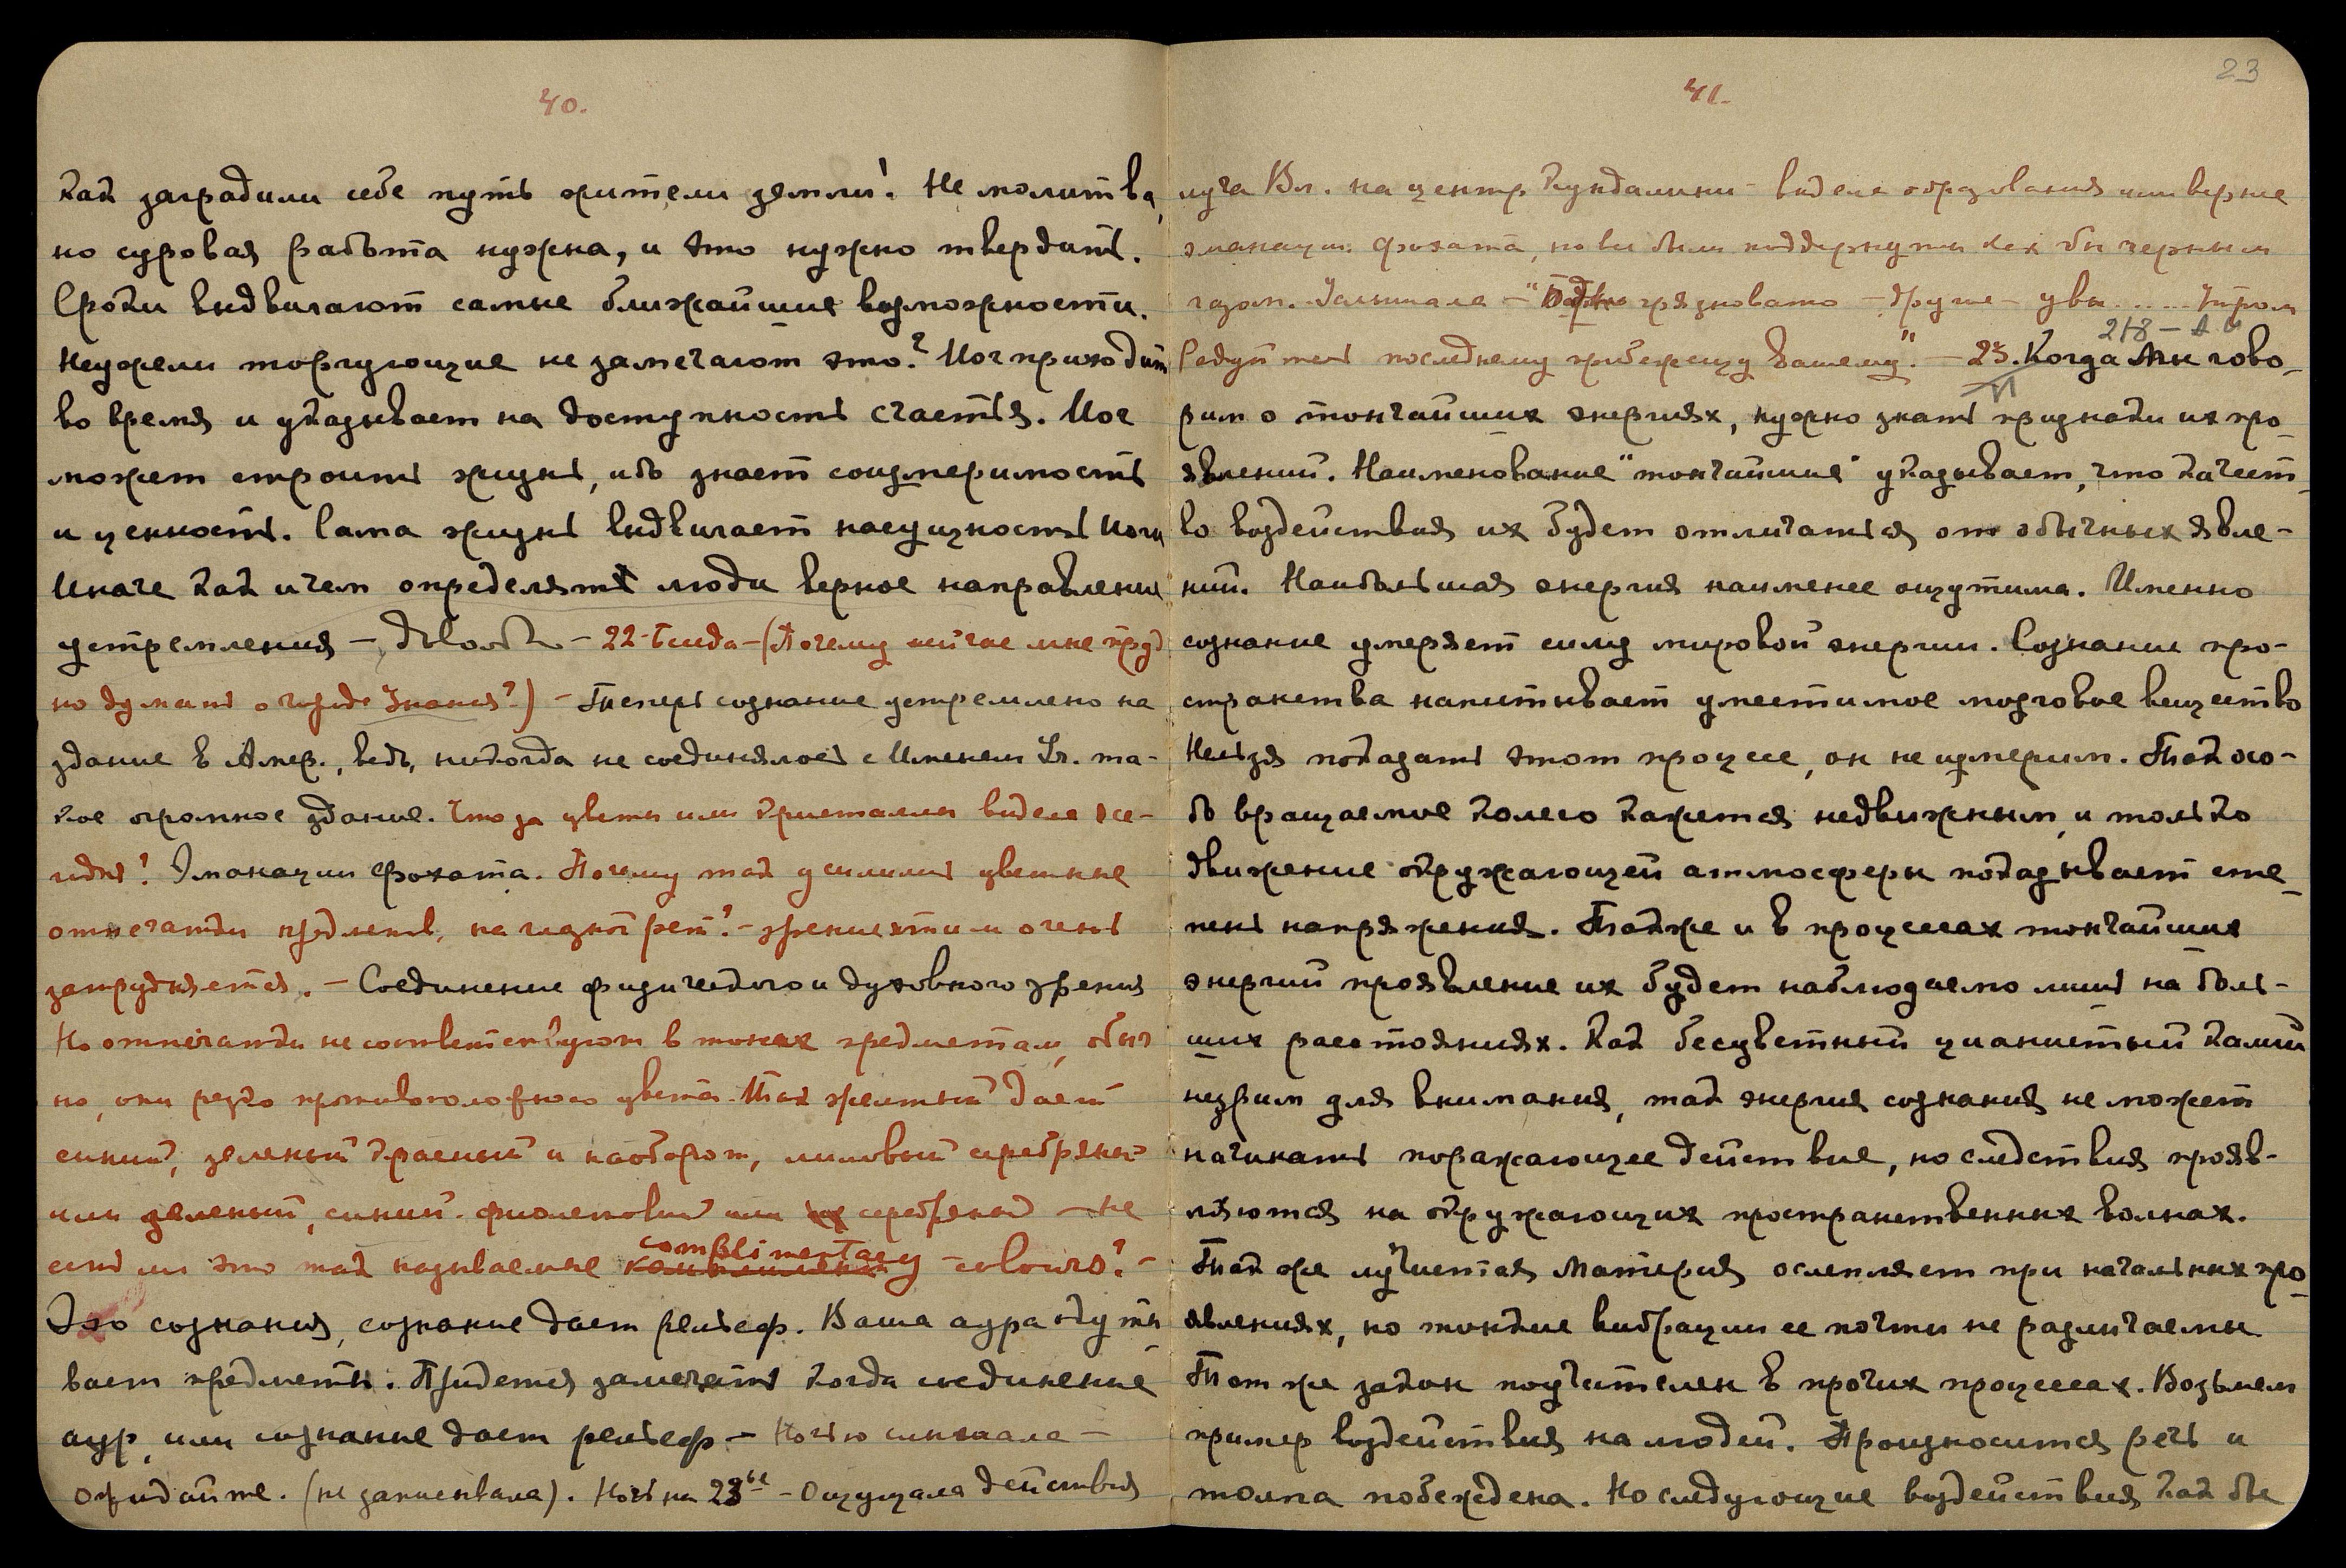 40.
как заградили себе путь жители земли! Не молитва,
но суровая работа нужна, и это нужно твердить.
Сроки выдвигают самые ближайшие возможности.
Неужели торгующие не замечают это? Йог приходит
во время и указывает на доступность счастья. Йог
может строить жизнь, ибо знает соизмеримость
и ценность. Сама жизнь выдвигает насущность Йоги
Иначе как и чем определять люди верное направление
устремления – – 22 – (Почему сейчас мне труд
но думать о городе Знания?) – Теперь сознание устремлено на
здание в Амер., ведь, никогда не соединялось с Именем Уч. та-
кое огромное здание. Что за цветы или кристаллы видела се-
годня? Эманации Фохата. Почему так усилились цветные
отпечатки предметов, на глазной рет.? – зрение этим очень
затрудняется. – Соединение физического и духовного зрения
Но отпечатки не соответствуют в тонах предметам, обыч
но, они резко противоположного цвета. Так желтый дает
синий, зеленый красный и наоборот, лиловый серебряный
или зеленый, синий – фиолетовый или серебряный – не
есть ли это так называемые complimentary colours? –
Эхо сознания, сознание дает рельеф. Ваша аура окуты
вает предметы. Придется замечать когда соединение
аур, или сознание дает рельеф – Ночью слышала –
ожидайте. (не записывала). Ночь на 23ье – Ощущала действия
23
41.
луча Вл. на центр Кундалини – видела образования или вернее
эманации Фохата, но они были поддернуты как бы черным
газом. Услышала – " грязновато – другие – увы ..... Утром
Радуйтесь последнему прибежищу Вашему". – 23. Когда Мы гово-
218 –
VI
рим о тончайших энергиях, нужно знать признаки их про-
явлений. Наименование "тончайшие" указывает, что качест-
во воздействия их будет отличаться от обычных явле-
ний. Наибольшая энергия наименее ощутима. Именно
сознание умеряет силу мировой энергии. Сознание про-
странства напитывает уместимое мозговое вещество
Нельзя показать этот процесс, он не измерим. Так осо-
бо вращаемое колесо кажется недвижным, и только
движение окружающей атмосферы показывает сте-
пень напряжения. Также и в процессах тончайших
энергий проявление их будет наблюдаемо лишь на боль-
ших расстояниях. Как бесцветный цианистый калий
незрим для внимания, так энергия сознания не может
начинать поражающее действие, но следствия прояв-
ляются на окружающих пространственных волнах.
Так же лучистая Материя ослепляет при начальных про-
явлениях, но тонкие вибрации ее почти не различаемы
Тот же закон поучителен в прочих процессах. Возьмем
пример воздействия на людей. Произносится речь и
толпа побеждена. Но следующие воздействия как бы